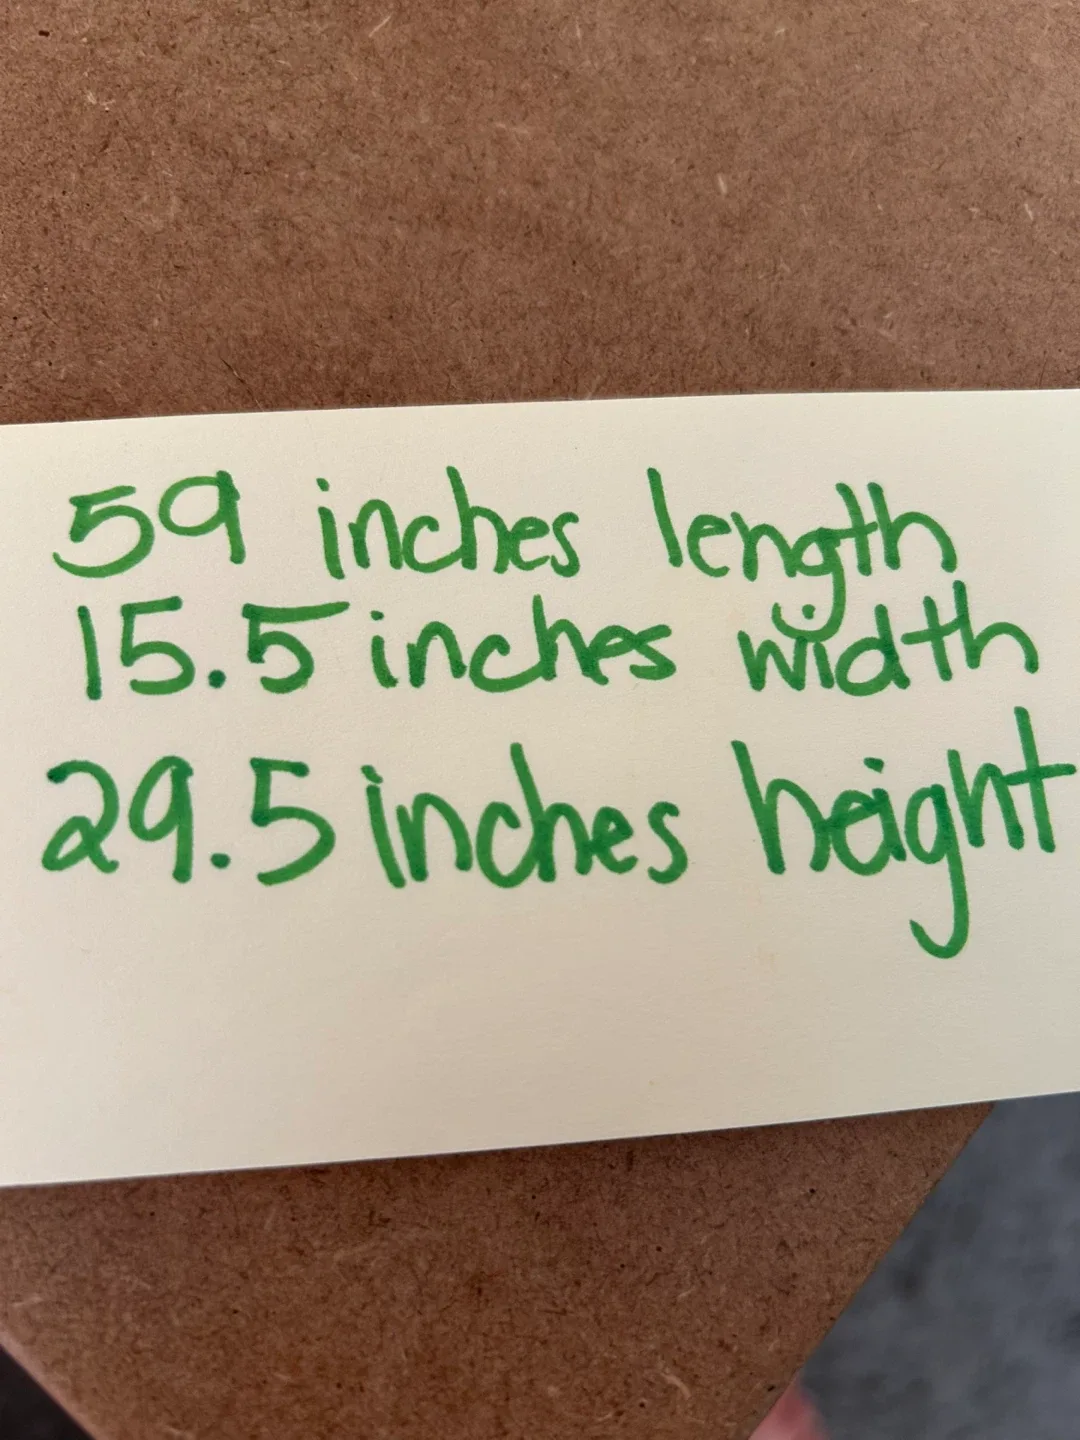 59 inches length
15.5 inches width
29.5 inches height